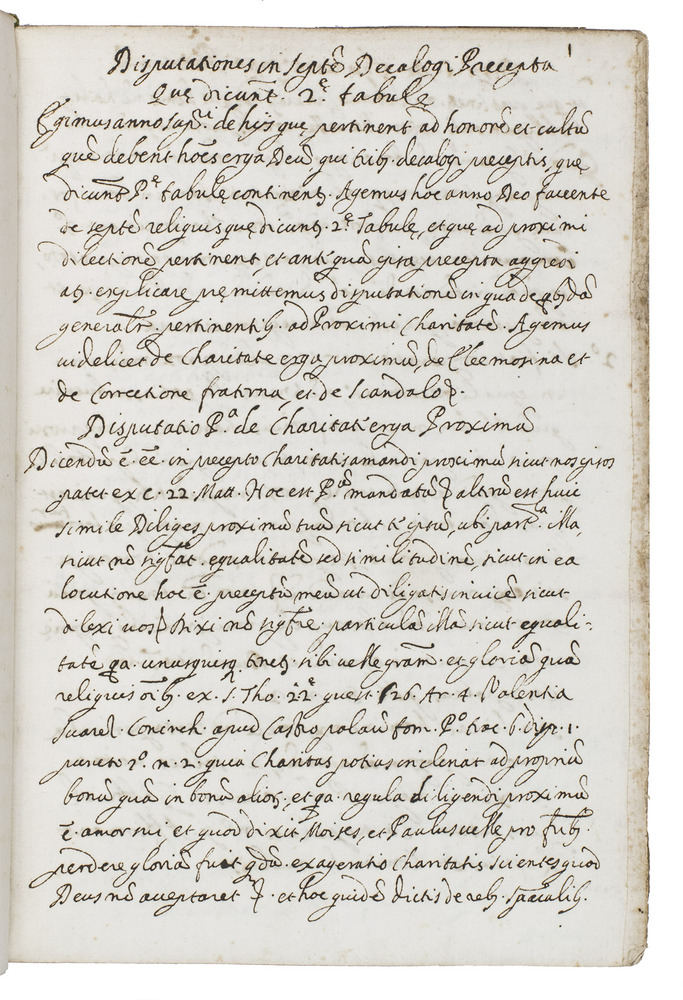 Disputationes in septē Decalogi Precepta 1
Quę dicunt. 2.ę tabulę
Egimus anno sup.ri de hijs quę pertinent ad honorē et cultū
quē debent hōes erga Deū qui tribꝫ decalogi preceptis, quę
dicunt P.ę tabulę continentꝫ. Agemus hoc anno Deo favente
de septē reliquis quę dicuntꝫ. 2.ę Tabulę, et quę ad proximi
dilectionē pertinent, et anti quā ipsa precepta aggredi
atꝫ. explicare pręmittemus disputationē in qua de qbꝫdā
generalr̄. pertinentibꝫ. ad Proximi Charitatē. Agēmus
uidelicet de Charitate erga proximū, de Eleemosina et
de Correctione fraterna, et de Scandalo.
Disputatio P.a de Charitate erga Proximū
Dicendū ē. eē. in precepto Charitatis amandi proximū sicut nos ipsos
patet ex c. 22. Matt. Hoc est P.um mandatū altrū est huic
simile Diliges proximū tuū sicut te ipsū, ubi part.a illa,
sicut nō sigfāt. ęqualitatē sed similitudinē, sicut in ea
locutione hoc ē. preceptū meū ut diligatis inuicē sicut
dilexi uos Dixi nō sigfre. particulā illā sicut equali-
tatē qa. unusquisq tenetꝫ. sibi uelle gram̄. et gloriā quā
reliquis oībꝫ. ex. S. Tho. 22.ę quest. 26. Ar. 4. Valentia
Suarez. Coninch. apud Castro palaū tom. P.o trac. 6. disp. 1.
puncto 2.o n. 2. quia Charitas potius inclinat ad propriū
bonū quā in bonū alior, et qa. regula diligendi proximū
ē. amor sui et quod dixit Moises, et Paulus uelle pro frībꝫ.
perdere gloriā fuit qdā. exageratio Charitatis scientes quod
Deus nō acceptaret. et hoc quidē dictis de rebꝫ. spūalibꝫ.